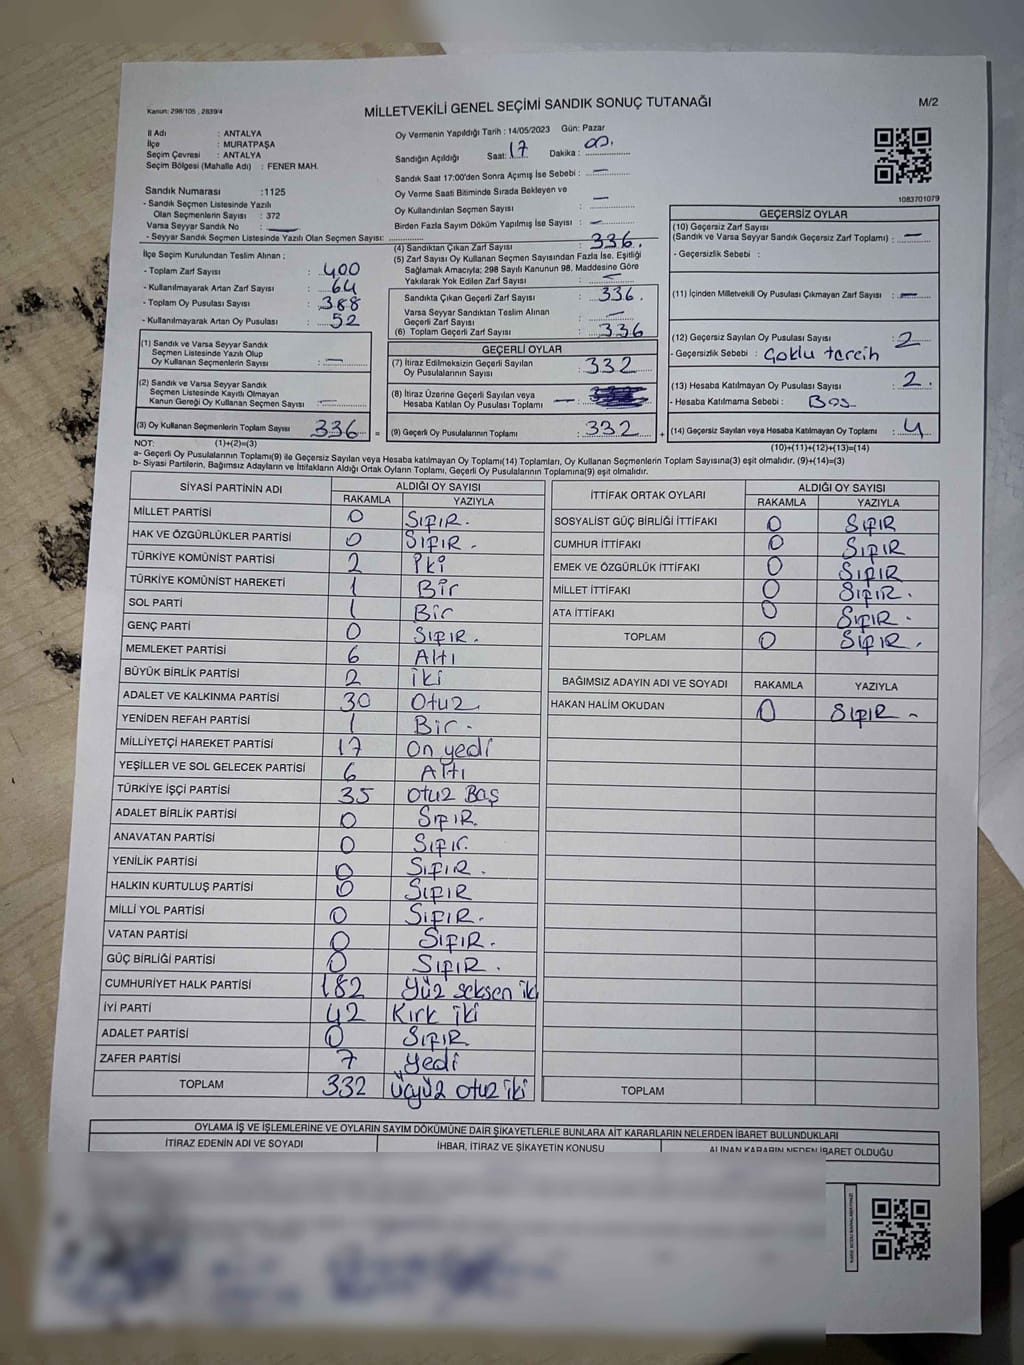 Kanun: 298/105 , 2839/4
MİLLETVEKİLİ GENEL SEÇİMİ SANDIK SONUÇ TUTANAĞI
M/2
İl Adı : ANTALYA
İlçe : MURATPAŞA
Seçim Çevresi : ANTALYA
Seçim Bölgesi (Mahalle Adı) : FENER MAH.
Oy Vermenin Yapıldığı Tarih : 14/05/2023 Gün: Pazar
Sandığın Açıldığı Saat: 17 Dakika : 00.
Sandık Saat 17:00'den Sonra Açımış İse Sebebi : —
Oy Verme Saati Bitiminde Sırada Bekleyen ve
Oy Kullandırılan Seçmen Sayısı : —
Birden Fazla Sayım Döküm Yapılmış İse Sayısı : —
1083701079
Sandık Numarası :1125
- Sandık Seçmen Listesinde Yazılı
Olan Seçmenlerin Sayısı : 372
Varsa Seyyar Sandık No : —
- Seyyar Sandık Seçmen Listesinde Yazılı Olan Seçmen Sayısı:
İlçe Seçim Kurulundan Teslim Alınan ;
- Toplam Zarf Sayısı : 400
- Kullanılmayarak Artan Zarf Sayısı : 64
- Toplam Oy Pusulası Sayısı : 388
- Kullanılmayarak Artan Oy Pusulası : 52
(1) Sandık ve Varsa Seyyar Sandık
Seçmen Listesinde Yazılı Olup
Oy Kullanan Seçmenlerin Sayısı : —
(2) Sandık ve Varsa Seyyar Sandık
Seçmen Listesinde Kayıtlı Olmayan
Kanun Gereği Oy Kullanan Seçmen Sayısı : —
(3) Oy Kullanan Seçmenlerin Toplam Sayısı 336 =
(4) Sandıktan Çıkan Zarf Sayısı : 336.
(5) Zarf Sayısı Oy Kullanan Seçmen Sayısından Fazla İse, Eşitliği
Sağlamak Amacıyla; 298 Sayılı Kanunun 98. Maddesine Göre
Yakılarak Yok Edilen Zarf Sayısı : —
Sandıkta Çıkan Geçerli Zarf Sayısı : 336.
Varsa Seyyar Sandıktan Teslim Alınan
Geçerli Zarf Sayısı : —
(6) Toplam Geçerli Zarf Sayısı : 336
GEÇERLİ OYLAR
(7) İtiraz Edilmeksizin Geçerli Sayılan
Oy Pusulalarının Sayısı : 332
(8) İtiraz Üzerine Geçerli Sayılan veya
Hesaba Katılan Oy Pusulası Toplamı —
(9) Geçerli Oy Pusulalarının Toplamı : 332 +
GEÇERSİZ OYLAR
(10) Geçersiz Zarf Sayısı
(Sandık ve Varsa Seyyar Sandık Geçersiz Zarf Toplamı) : —
- Geçersizlik Sebebi :
(11) İçinden Milletvekili Oy Pusulası Çıkmayan Zarf Sayısı : —
(12) Geçersiz Sayılan Oy Pusulası Sayısı : 2
- Geçersizlik Sebebi : Çoklu tercih
(13) Hesaba Katılmayan Oy Pusulası Sayısı : 2.
- Hesaba Katılmama Sebebi : Boş
(14) Geçersiz Sayılan veya Hesaba Katılmayan Oy Toplamı : 4
NOT: (1)+(2)=(3)
(10)+(11)+(12)+(13)=(14)
a- Geçerli Oy Pusulasının Toplamı(9) ile Geçersiz Sayılan veya Hesaba Katılmayan Oy Toplamı(14) Toplamları, Oy Kullanan Seçmenlerin Toplam Sayısına(3) eşit olmalıdır. (9)+(14)=(3)
b- Siyasi Partilerin, Bağımsız Adayların ve İttifakların Aldığı Ortak Oyların Toplamı, Geçerli Oy Pusulalarının Toplamına(9) eşit olmalıdır.
SİYASİ PARTİNİN ADI ALDIĞI OY SAYISI
RAKAMLA YAZIYLA
MİLLET PARTİSİ 0 SIFIR.
HAK VE ÖZGÜRLÜKLER PARTİSİ 0 SIFIR.
TÜRKİYE KOMÜNİST PARTİSİ 2 İki
TÜRKİYE KOMÜNİST HAREKETİ 1 Bir
SOL PARTİ 1 Bir
GENÇ PARTİ 0 SIFIR.
MEMLEKET PARTİSİ 6 Altı
BÜYÜK BİRLİK PARTİSİ 2 iki
ADALET VE KALKINMA PARTİSİ 30 Otuz
YENİDEN REFAH PARTİSİ 1 Bir.
MİLLİYETÇİ HAREKET PARTİSİ 17 On yedi
YEŞİLLER VE SOL GELECEK PARTİSİ 6 Altı
TÜRKİYE İŞÇİ PARTİSİ 35 Otuz Baş
ADALET BİRLİK PARTİSİ 0 SIFIR.
ANAVATAN PARTİSİ 0 SIFIR.
YENİLİK PARTİSİ 0 SIFIR.
HALKIN KURTULUŞ PARTİSİ 0 SIFIR
MİLLİ YOL PARTİSİ 0 SIFIR.
VATAN PARTİSİ 0 SIFIR.
GÜÇ BİRLİĞİ PARTİSİ 0 SIFIR.
CUMHURİYET HALK PARTİSİ 182 Yüz seksen iki
İYİ PARTİ 42 Kırk iki
ADALET PARTİSİ 0 SIFIR
ZAFER PARTİSİ 7 Yedi
TOPLAM 332 üçyüz otuz iki
İTTİFAK ORTAK OYLARI ALDIĞI OY SAYISI
RAKAMLA YAZIYLA
SOSYALİST GÜÇ BİRLİĞİ İTTİFAKI 0 SIFIR
CUMHUR İTTİFAKI 0 SIFIR
EMEK VE ÖZGÜRLÜK İTTİFAKI 0 SIFIR
MİLLET İTTİFAKI 0 SIFIR.
ATA İTTİFAKI 0 SIFIR.
TOPLAM 0 SIFIR.
BAĞIMSIZ ADAYIN ADI VE SOYADI RAKAMLA YAZIYLA
HAKAN HALİM OKUDAN 0 SIFIR
TOPLAM
OYLAMA İŞ VE İŞLEMLERİNE VE OYLARIN SAYIM DÖKÜMÜNE DAİR ŞİKAYETLERLE BUNLARA AİT KARARLARIN NELERDEN İBARET BULUNDUKLARI
İTİRAZ EDENİN ADI VE SOYADI İHBAR, İTİRAZ VE ŞİKAYETİN KONUSU ALINAN KARARIN NEDEN İBARET OLDUĞU